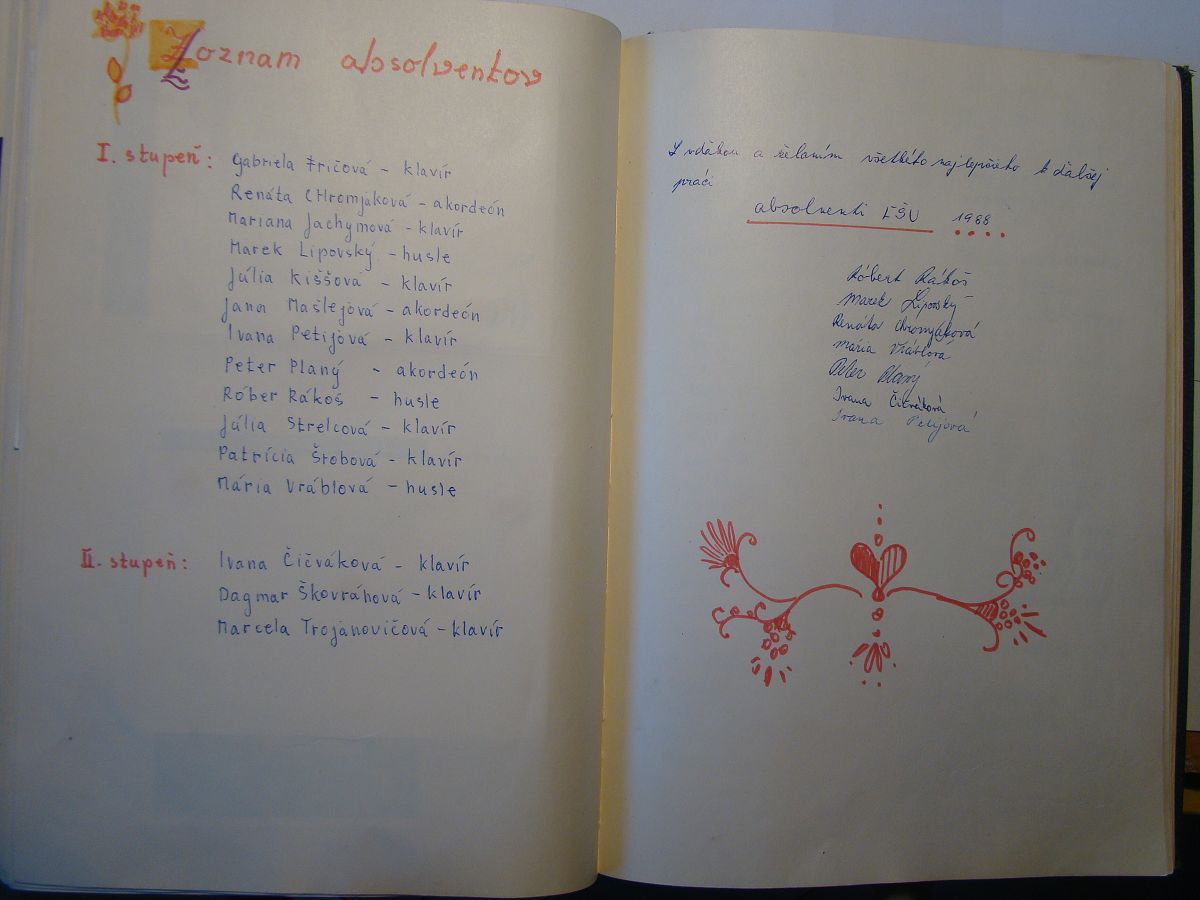 Zoznam absolventov
I. stupeň: Gabriela Fričová - klavír
Renáta CHromjáková - akordeón
Mariana Jachymová - klavír
Marek Lipovský - husle
Júlia Kiššová - klavír
Jana Mašlejová - akordeón
Ivana Petijová - klavír
Peter Planý - akordeón
Róber Rákoš - husle
Júlia Strelcová - klavír
Patrícia Šrobová - klavír
Mária Vráblová - husle
II. stupeň: Ivana Čičváková - klavír
Dagmar Škovráhová - klavír
Marcela Trojanovičová - klavír
S vďakou a želaním všetkého najlepšieho k ďalšej
práci
absolventi ĽŠU 1988
Róbert Rákoš
Marek Lipovský
Renáta Chromjáková
Mária Vráblová
Peter Planý
Ivana Čičváková
Ivana Petijová